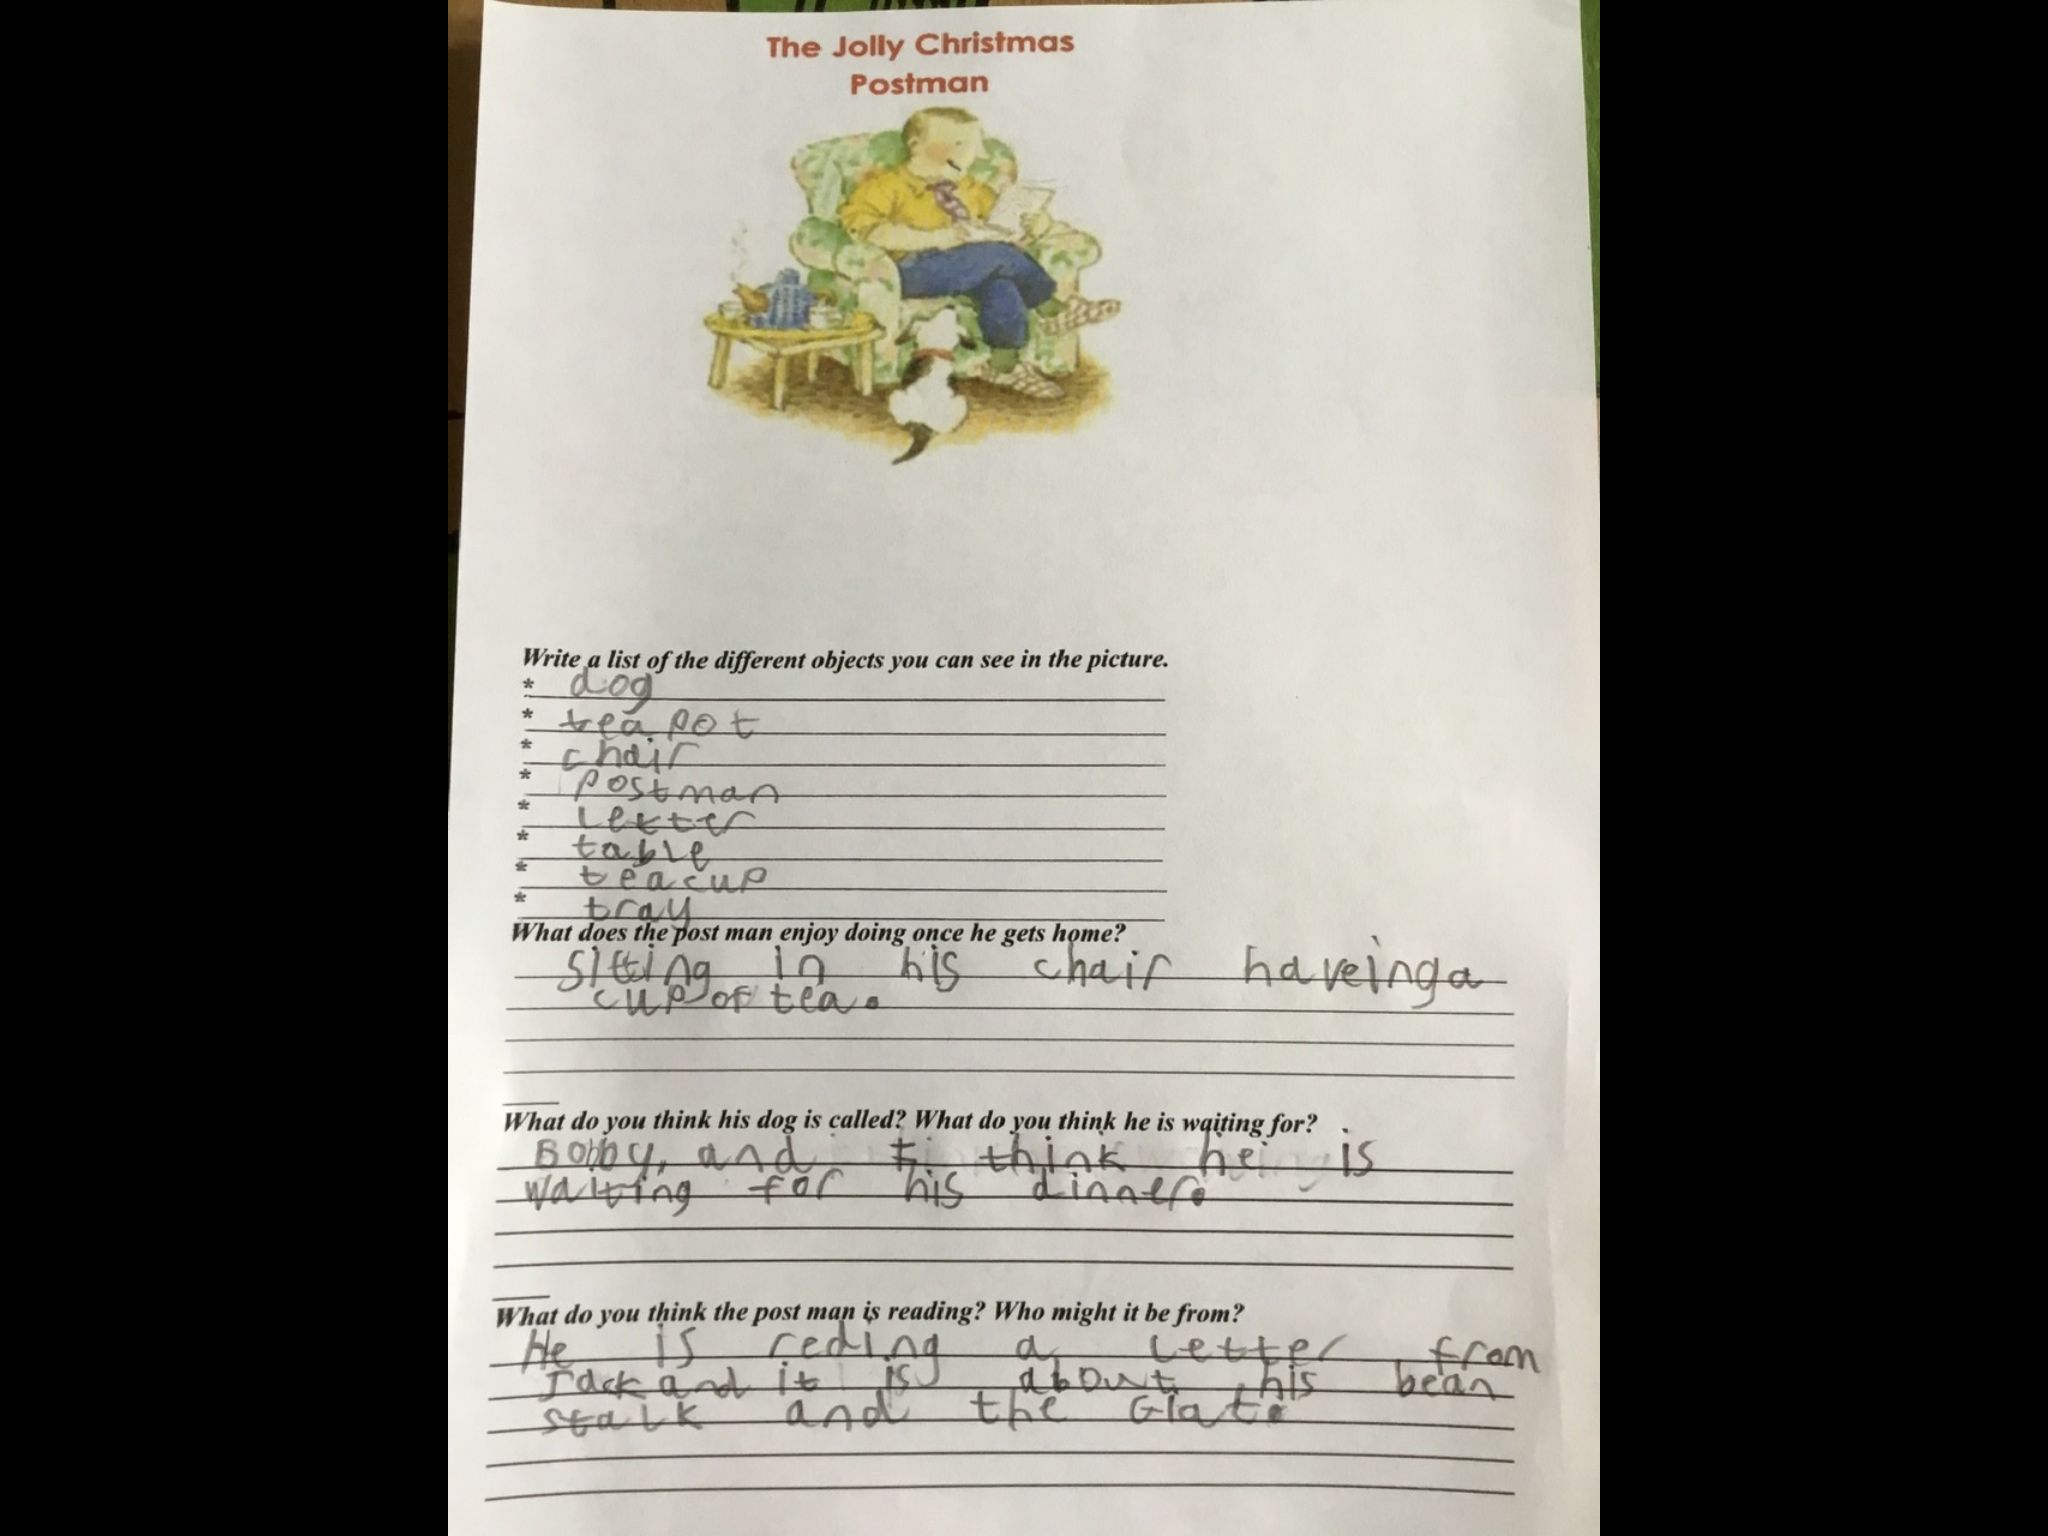 The Jolly Christmas
Postman
Write a list of the different objects you can see in the picture.
* dog
* tea pot
* chair
* postman
* letter
* table
* teacup
* tray
What does the post man enjoy doing once he gets home?
Sitting in his chair haveing a
cup of tea.
What do you think his dog is called? What do you think he is waiting for?
Bobby, and I think he is
waiting for his dinner.
What do you think the post man is reading? Who might it be from?
He is reding a letter from
Jack and it is about his bean
stalk and the Giat.